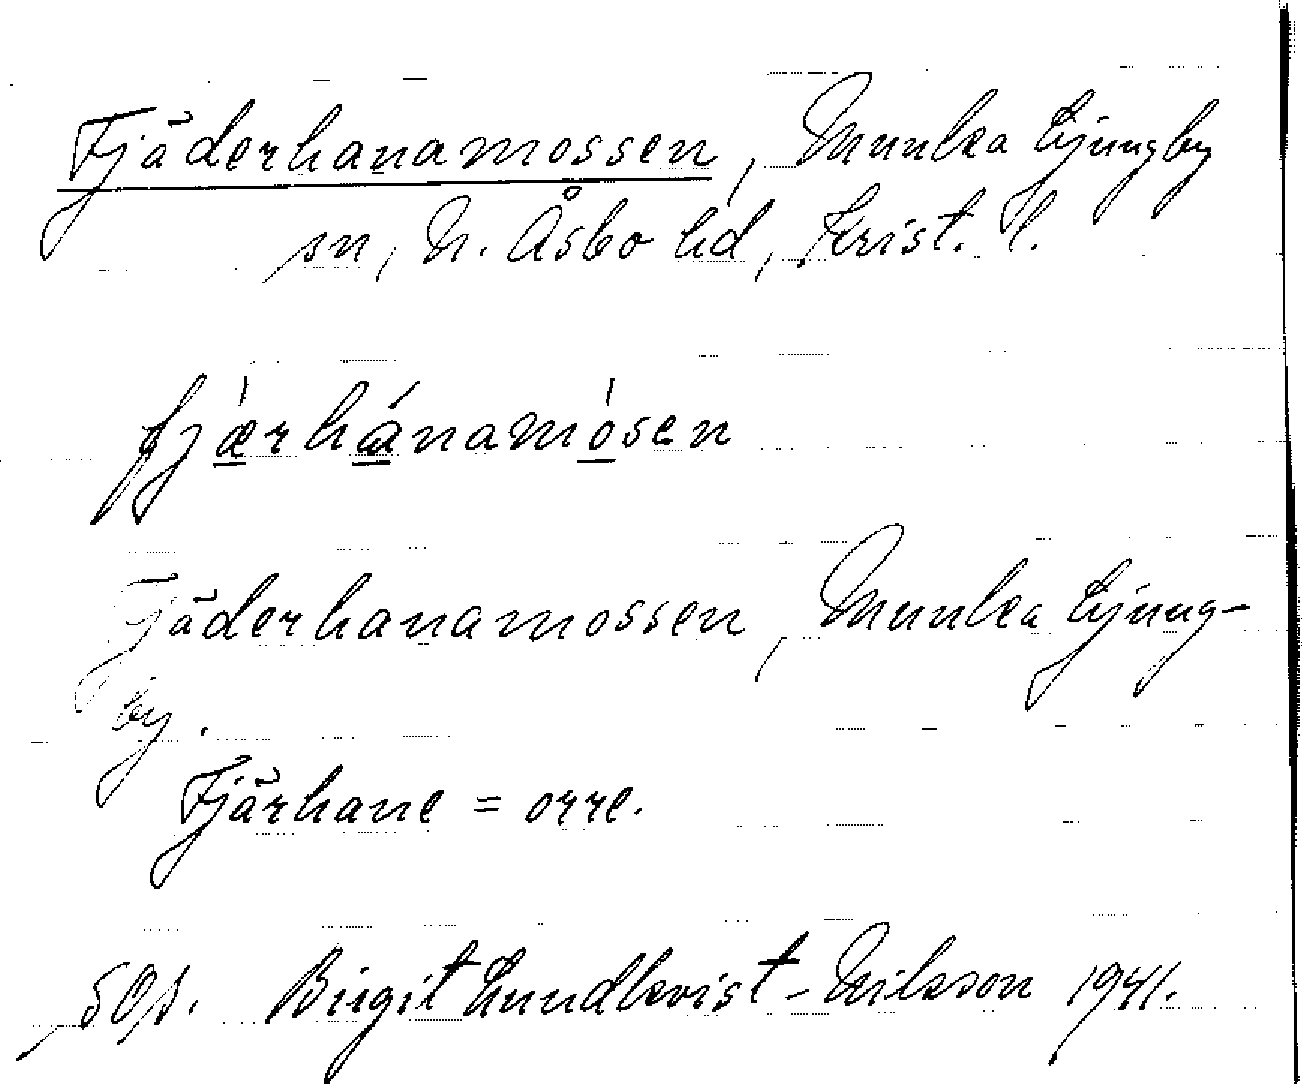 Fjäderhanamossen, Munka Ljungby
sn, N. Åsbo hd, Krist. l.
fjǽrhánamósen
Fjäderhanamossen, Munka Ljung-
by.
Fjärhane = orre.
Birgit Lundkvist-Nilsson 1941.